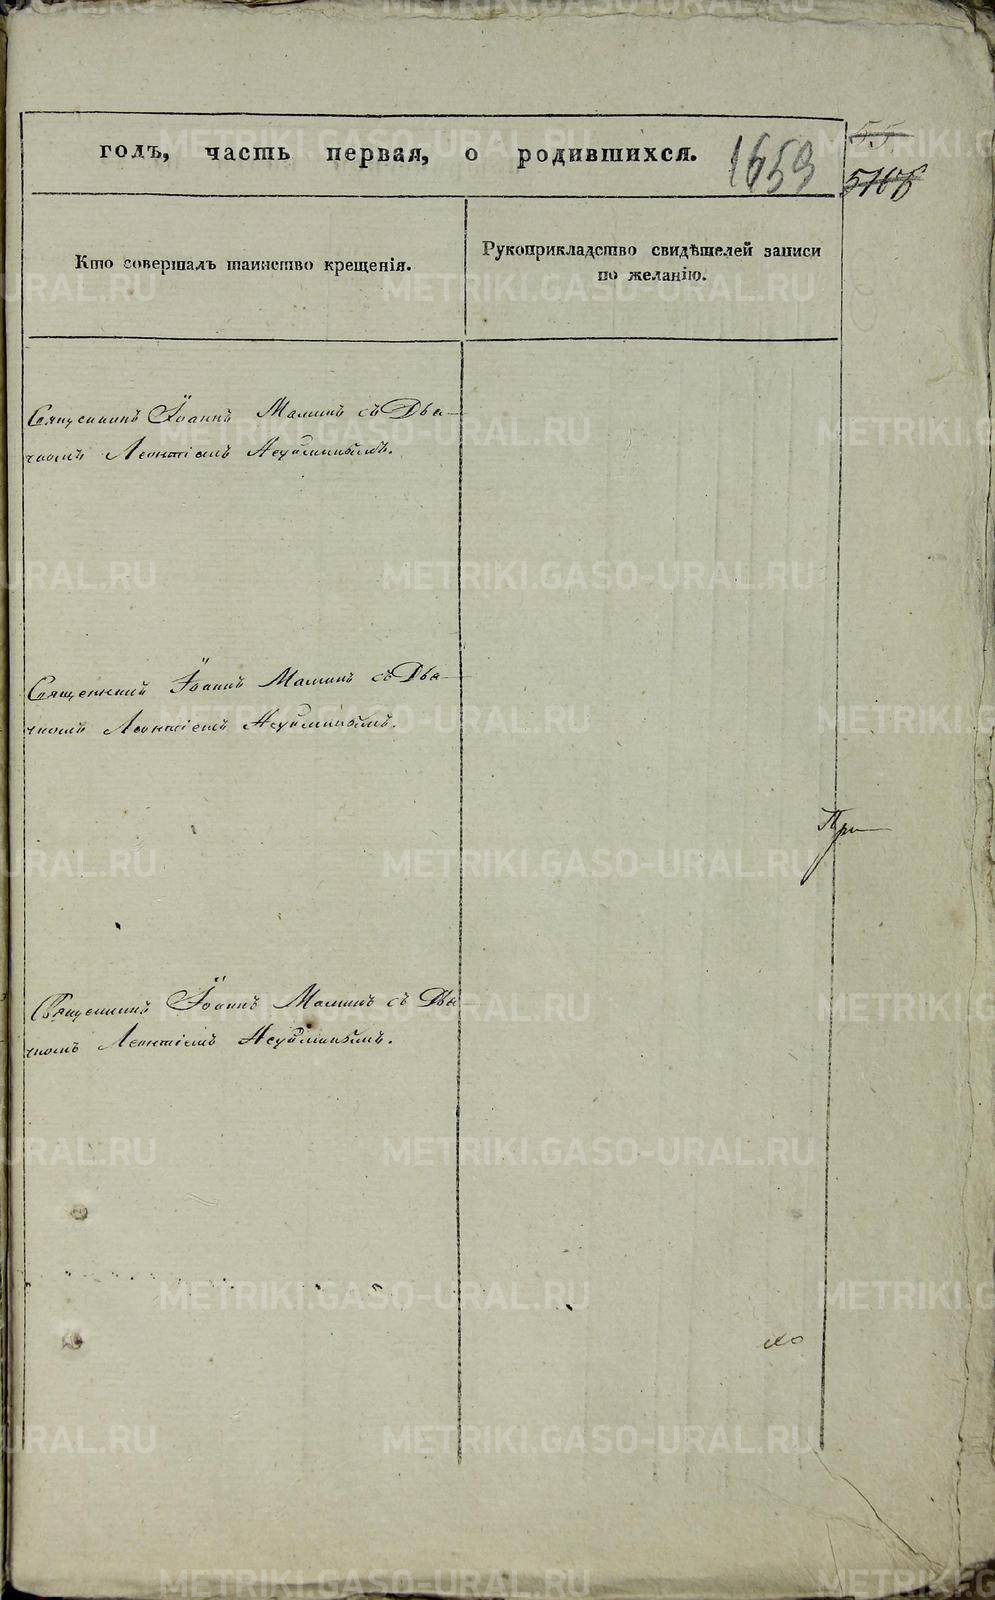 годъ, часть первая, о родившихся.
1659
55
Кто совершалъ таинство крещенія.
Рукоприкладство свидѣтелей записи
по желанію.
Священникъ Іоаннъ Маминъ съ Дья-
чкомъ Леонтіемъ
Священникъ Іоаннъ Маминъ съ Дья-
чкомъ Леонтіемъ
При
Священникъ Іоаннъ Маминъ съ Дья
чкомъ Леонтіемъ
METRIKI.GASO-URAL.RU